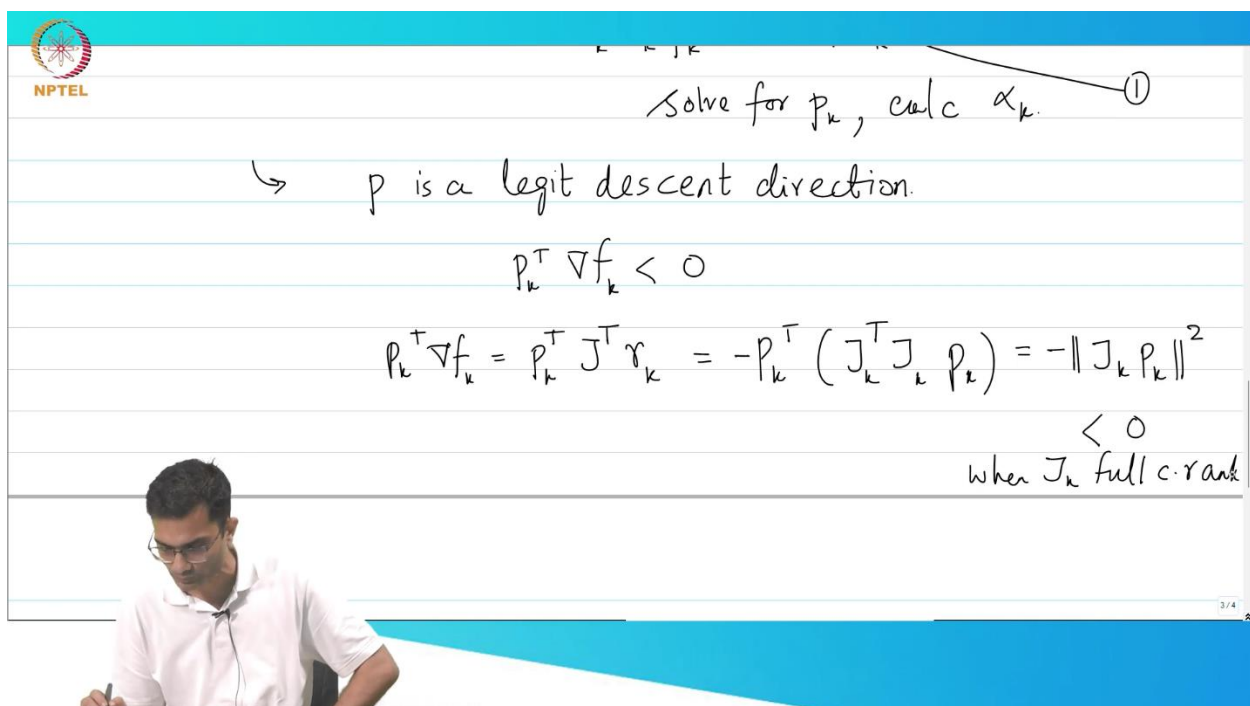 NPTEL
①
solve for pₖ, calc αₖ.
↳ p is a legit descent direction.
pₖᵀ ∇fₖ < 0
pₖᵀ∇fₖ = pₖᵀ Jᵀ rₖ = -pₖᵀ ( Jₖᵀ Jₖ pₖ ) = -‖ Jₖ pₖ ‖²
< 0
when Jₖ full c.rank
3/4